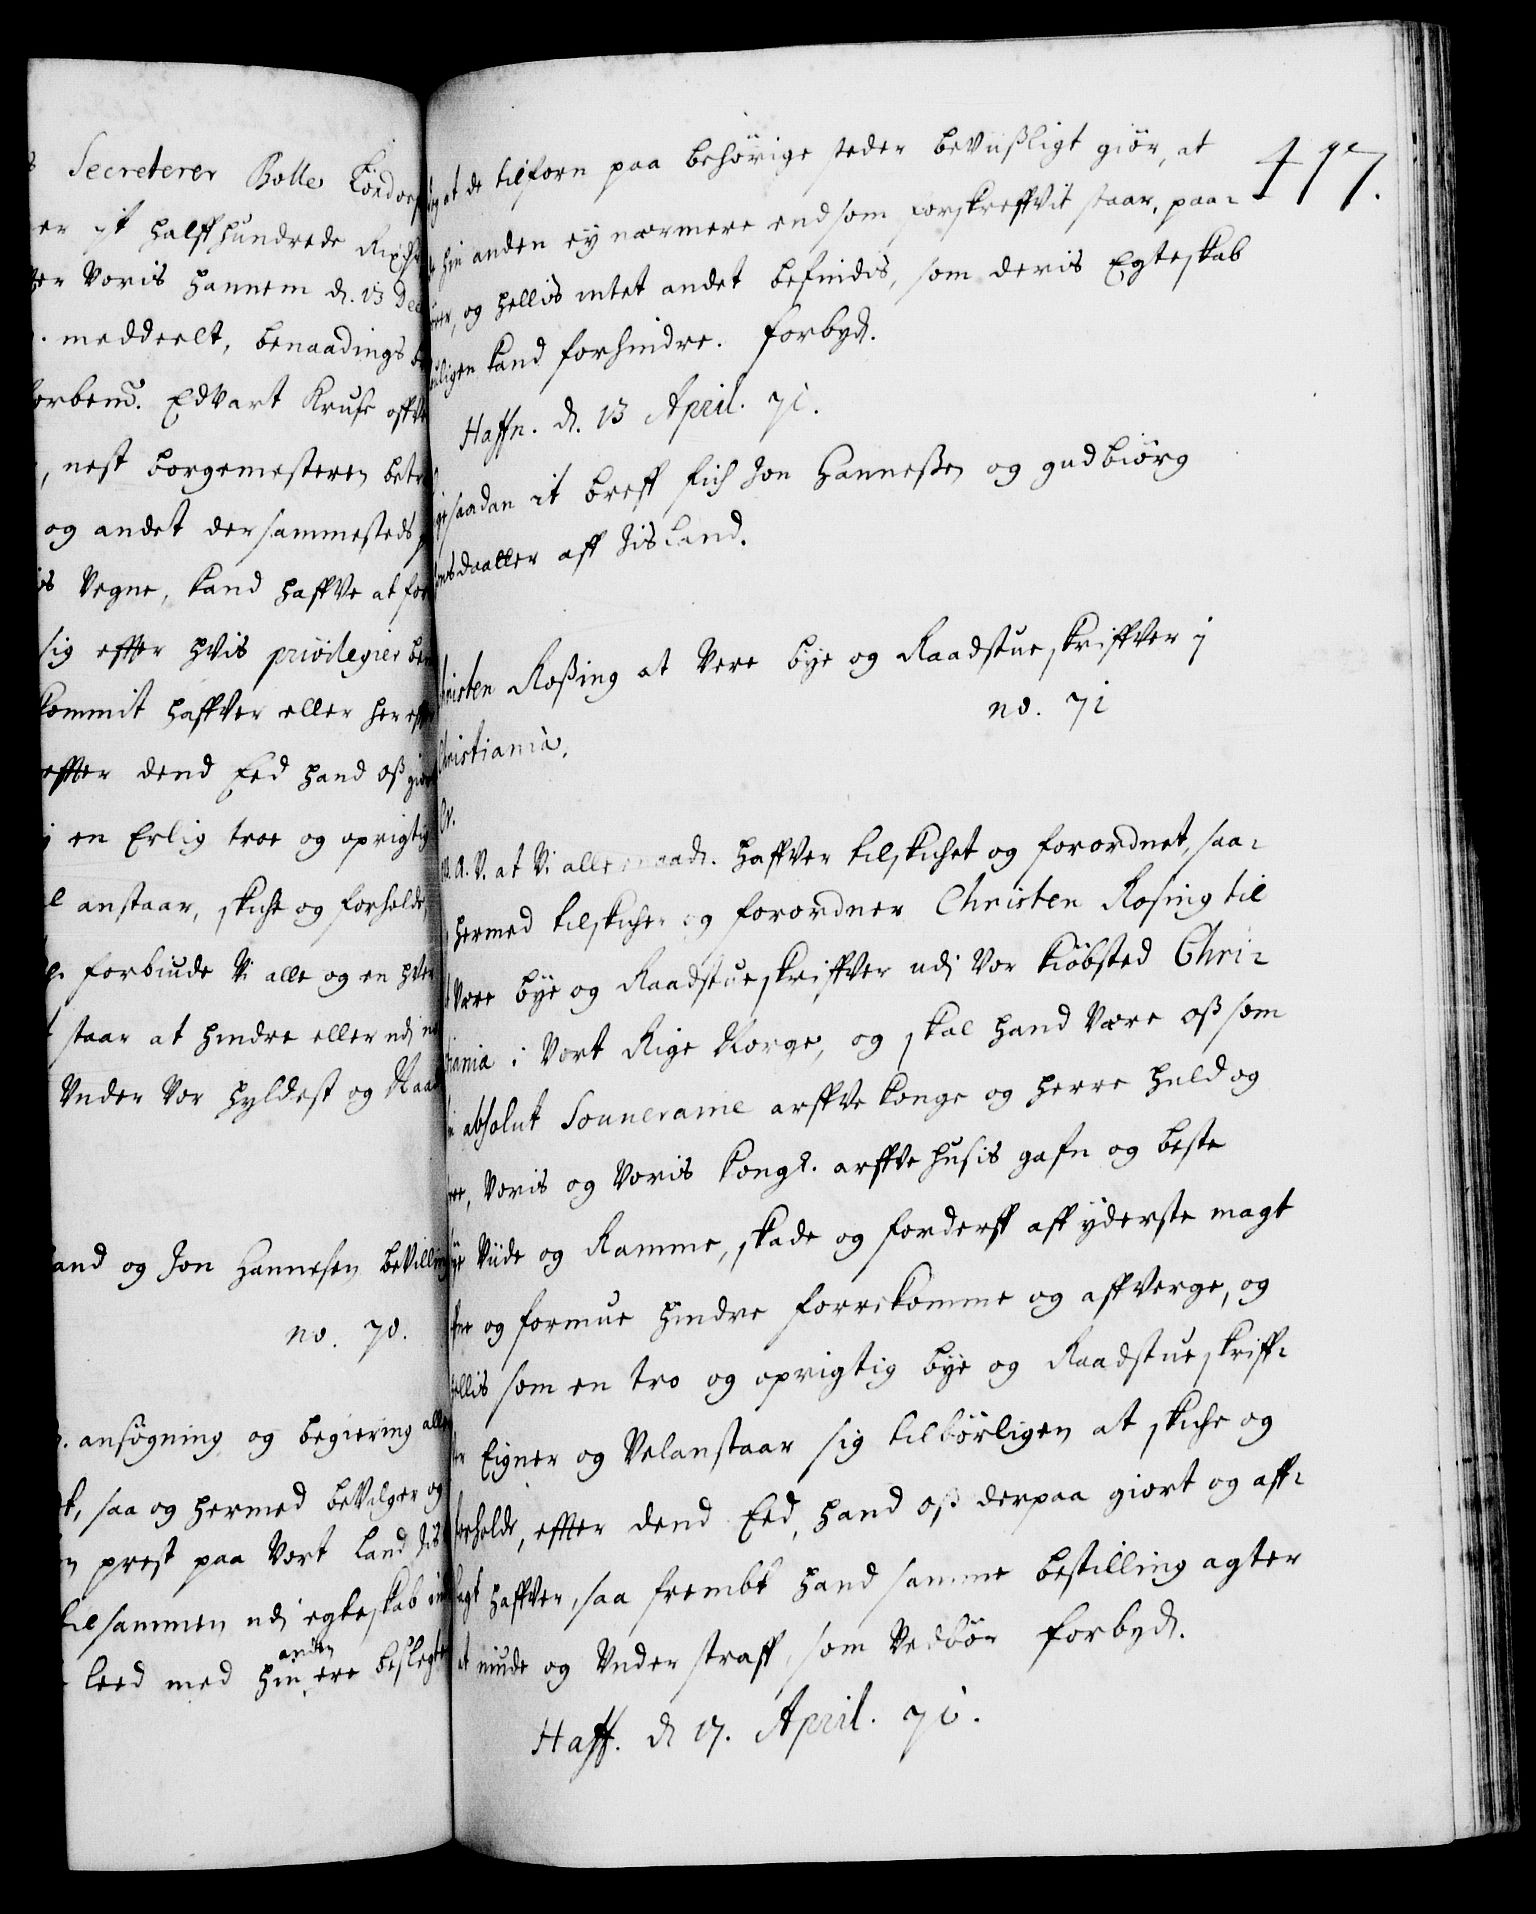 Secreterer Bolle Londorf
er it halffhundrede Rixd
er Voris hannem d. 13 De
meddeelt, benaadings
Edvart Kruse offv
nest borgemesteren bet
og andet dersammesteds
Vegne, kand haffve at for
sig effter hvis privilegier be
kommit haffver eller hereffter
effter dend Eed hand oß giör
en Erlig troe og oprigtig
anstaar, skicke og forholde,
forbiude Vi alle og en hver
staar at hindre eller udj
Vnder Vor hyldest og Naad
and og Jon Hannesen beVilling
no. 70.
ansögning og begiering aller
saa og hermed beVilger og
prest paa Vort Land Iis
tilsammen udj egteskab
leed med hin anden ere beslegt
417.
at de tilforn paa behörige steder beVißligt giör, at
hin anden ey nærmere end som forskreffvit staar, paa-
og hellis intet andet befindis, som deris Egteskab
ligen kand forhindre. Forbyd.
Haffn. d. 13 April. 71.
saadan it breff fich Jon Hanneßen og gudbiörg
daatter aff Iisland.
Christen Roßing at Vere bye og Raadstueskriffver j
no. 71
Christiania.
C5.
G. A. V. at Vi allernaad. haffver tilskichet og forordnet, saa-
hermed tilskicher og forordner Christen Rosing til
at Være bye og Raadstueskriffver udj Vor kiöbsted Chri-
stiania i Vort Rige Norge, og skal hand Være oß som
absolut Souveraine arffve konge og herre huld og
troe, Voris og Voris kongl. arffve husis gafn og beste
Viide og Ramme, skade og forderff aff yderste magt
og formue hindre forrekomme og affverge, og
hellis som en tro og oprigtig bye og Raadstueskriff-
ver Eigner og Velanstaar sig tilbörligen at skicke og
forholde, effter dend Eed, hand oß derpaa giort og aff-
lagt haffver, saa frembt hand samme bestilling agter
at niude og Vnder straff, som Vedbör Forbyd.
Haff. d 17. April. 71.